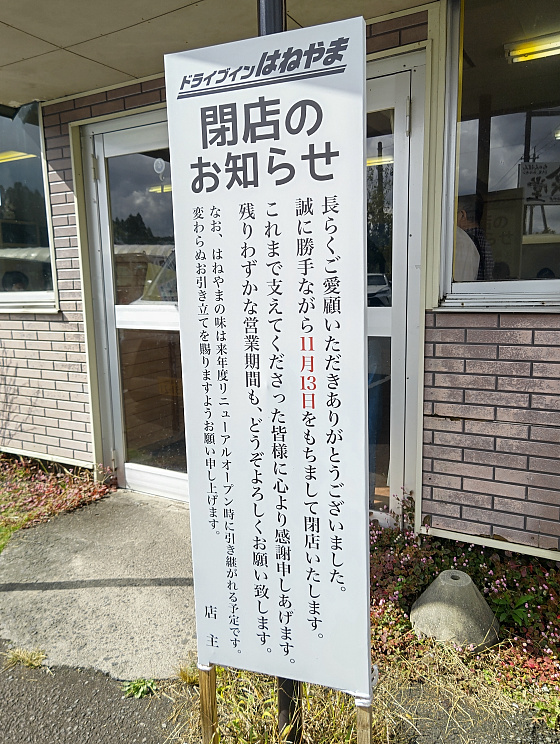 ドライブインはねやま
閉店の
お知らせ
長らくご愛顧いただきありがとうございました。
誠に勝手ながら11月13日をもちまして閉店いたします。
これまで支えてくださった皆様に心より感謝申しあげます。
残りわずかな営業期間も、どうぞよろしくお願い致します。
なお、はねやまの味は来年度リニューアルオープン時に引き継がれる予定です。
変わらぬお引き立てを賜りますようお願い申し上げます。
店主